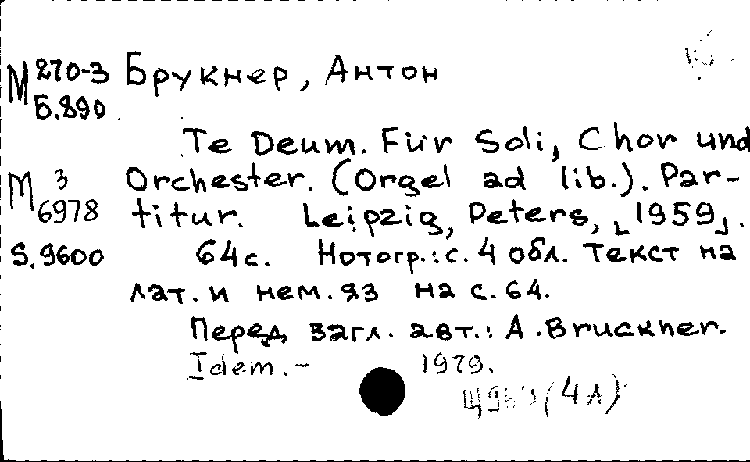 М 270-3 Брукнер, Антон
Б.890
Te Deum. Für Soli, Chor und
М 3 Orchester. (Orgel ad lib.). Par-
6978 titur. Leipzig, Peters, [1959].
S.9600 64с. Нотогр.: с. 4 обл. Текст на
лат. и нем. яз на с. 64.
Перед загл. авт.: A. Bruckner.
Idem. - 1979.
(4л)